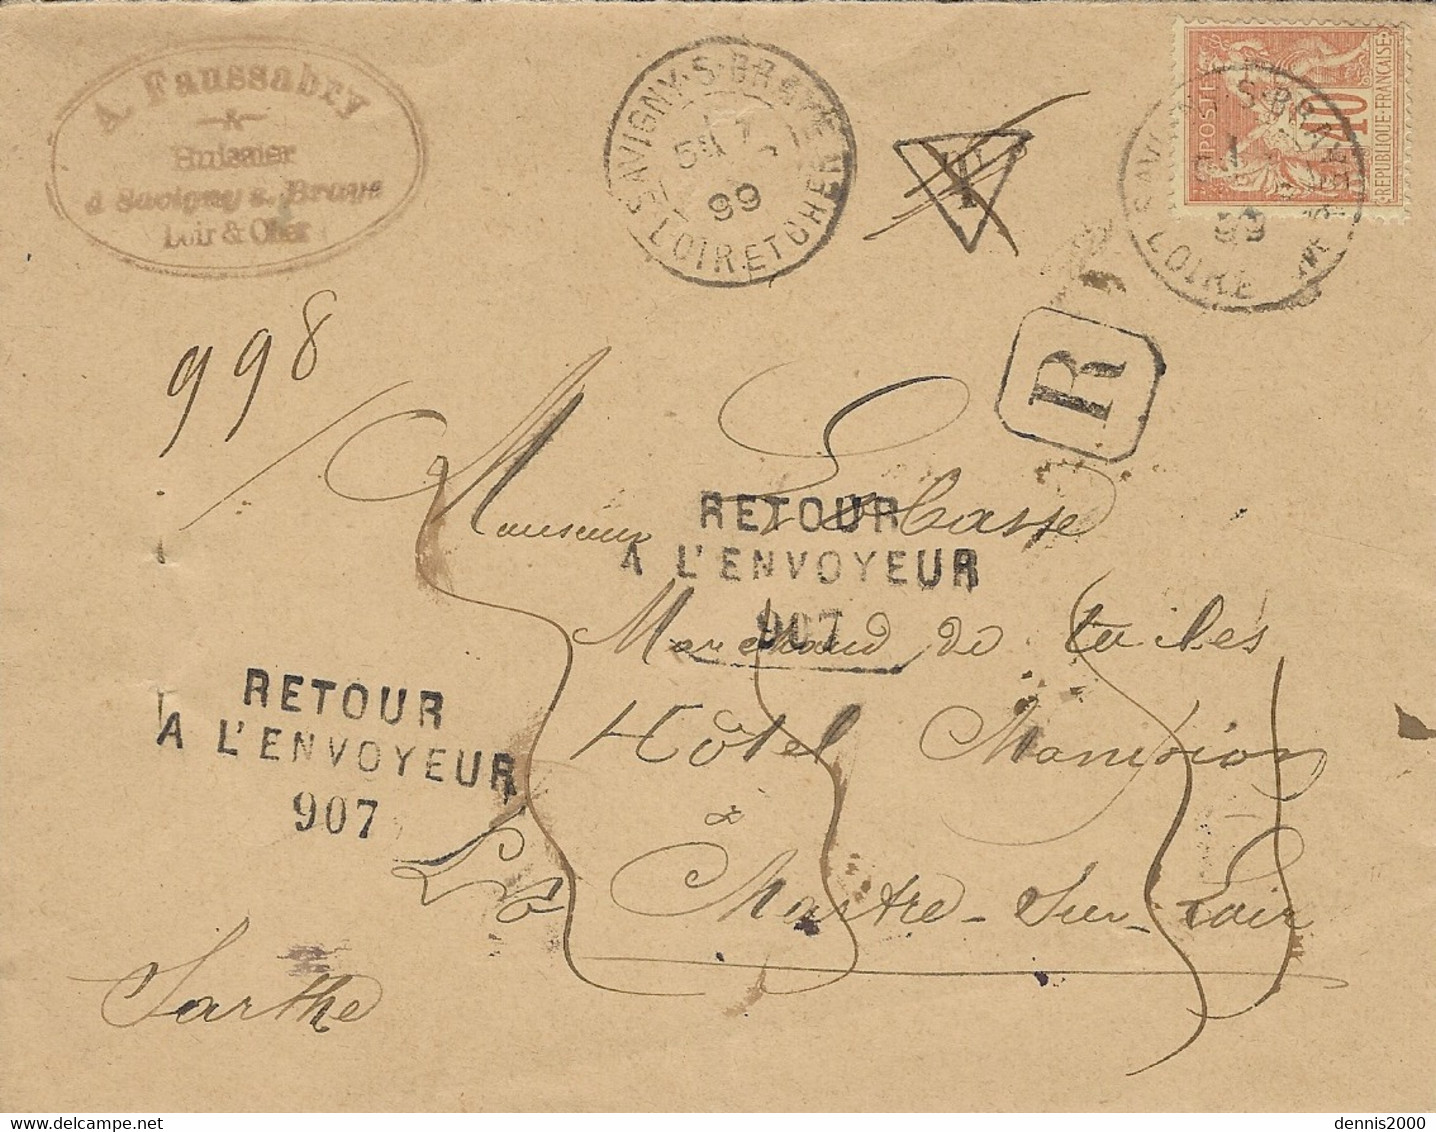 A. Faussabry
Huissier
à Savigny s. Braye
Loir & Cher
SAVIGNY-S-BRAYE
99
LOIR ET CHER
T
POSTE
40
REPUBLIQUE FRANÇAISE
S-BRAYE
99
R
998
Monsieur Lebasse
RETOUR
A L'ENVOYEUR
907
Marchand de toiles
RETOUR
A L'ENVOYEUR
907
Hôtel
à
La Chartre-sur-Loir
Sarthe
dennis2000